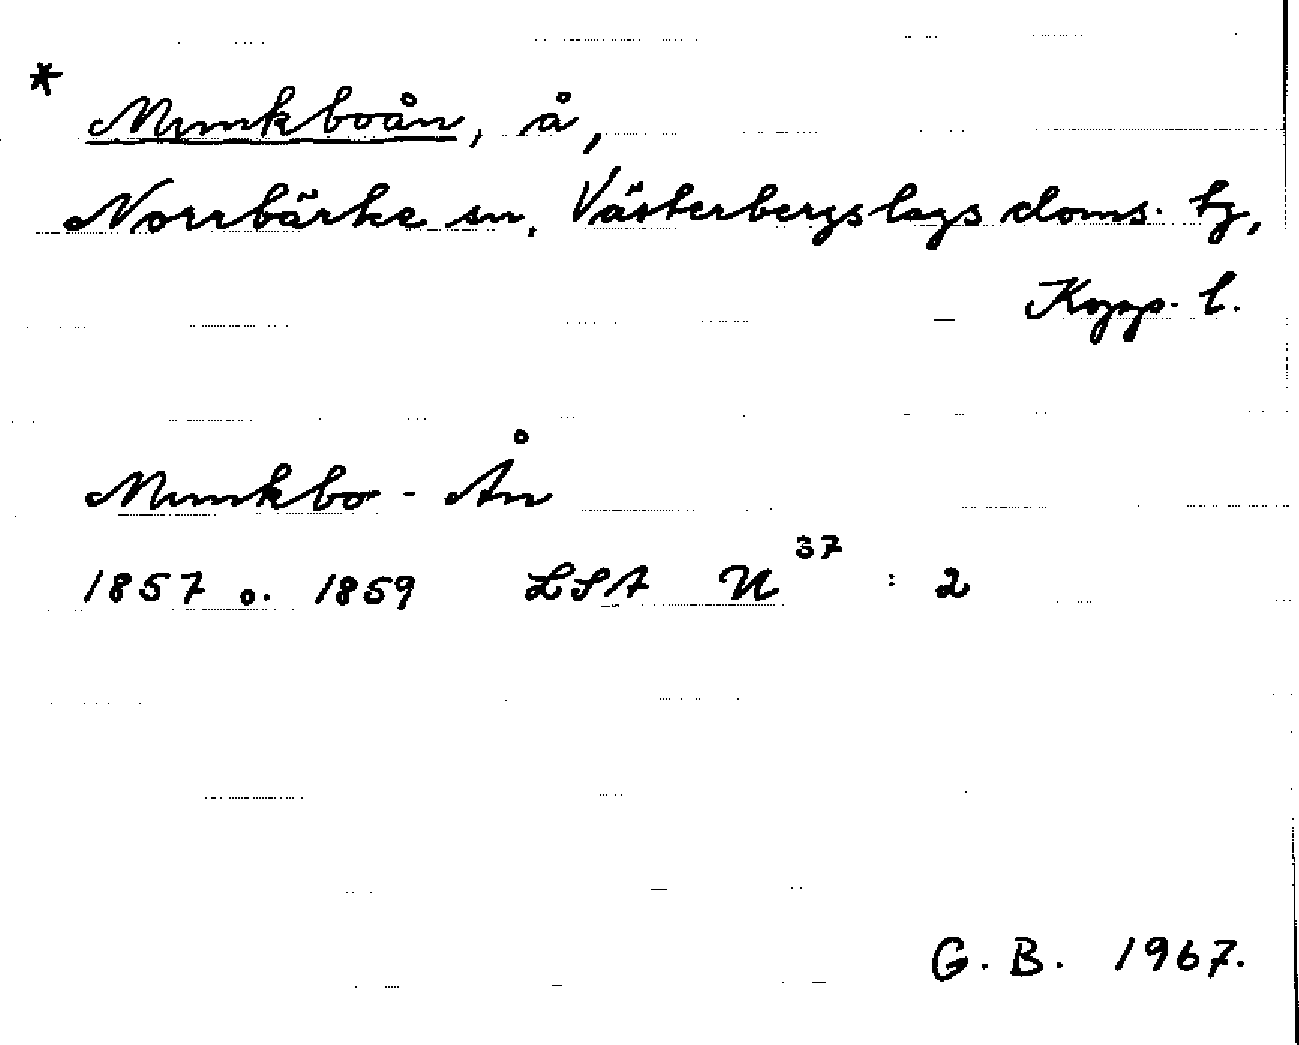 * Munkboån, å,
Norrbärke sn, Västerbergslags doms. tg,
Kopp. l.
Munkbo - Ån
1857 o. 1859 LSA U 37 : 2
G. B. 1967.